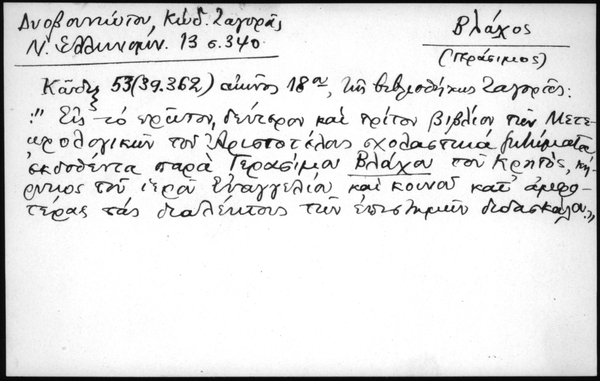 Δυοβουνιώτου, Κώδ. Ζαγορᾶς
Ν. Ἑλληνομν. 13 σ. 340
Βλάχος
(Γεράσιμος)
Κῶδιξ 53 (39.362) αἰῶνος 18ου, τῆς βιβλιοθήκης Ζαγορᾶς:
:" Εἰς τὸ πρῶτον, δεύτερον καὶ τρίτον βιβλίον τῶν Μετε-
ωρολογικῶν τοῦ Ἀριστοτέλους σχολαστικὰ ζητήματα
ἐκδοθέντα παρὰ Γερασίμου Βλάχου τοῦ Κρητός, κή-
ρυκος τοῦ ἱεροῦ Εὐαγγελίου καὶ κοινοῦ κατ' ἀμφο-
τέρας τὰς διαλέκτους τῶν ἐπιστημῶν διδασκάλου.,,